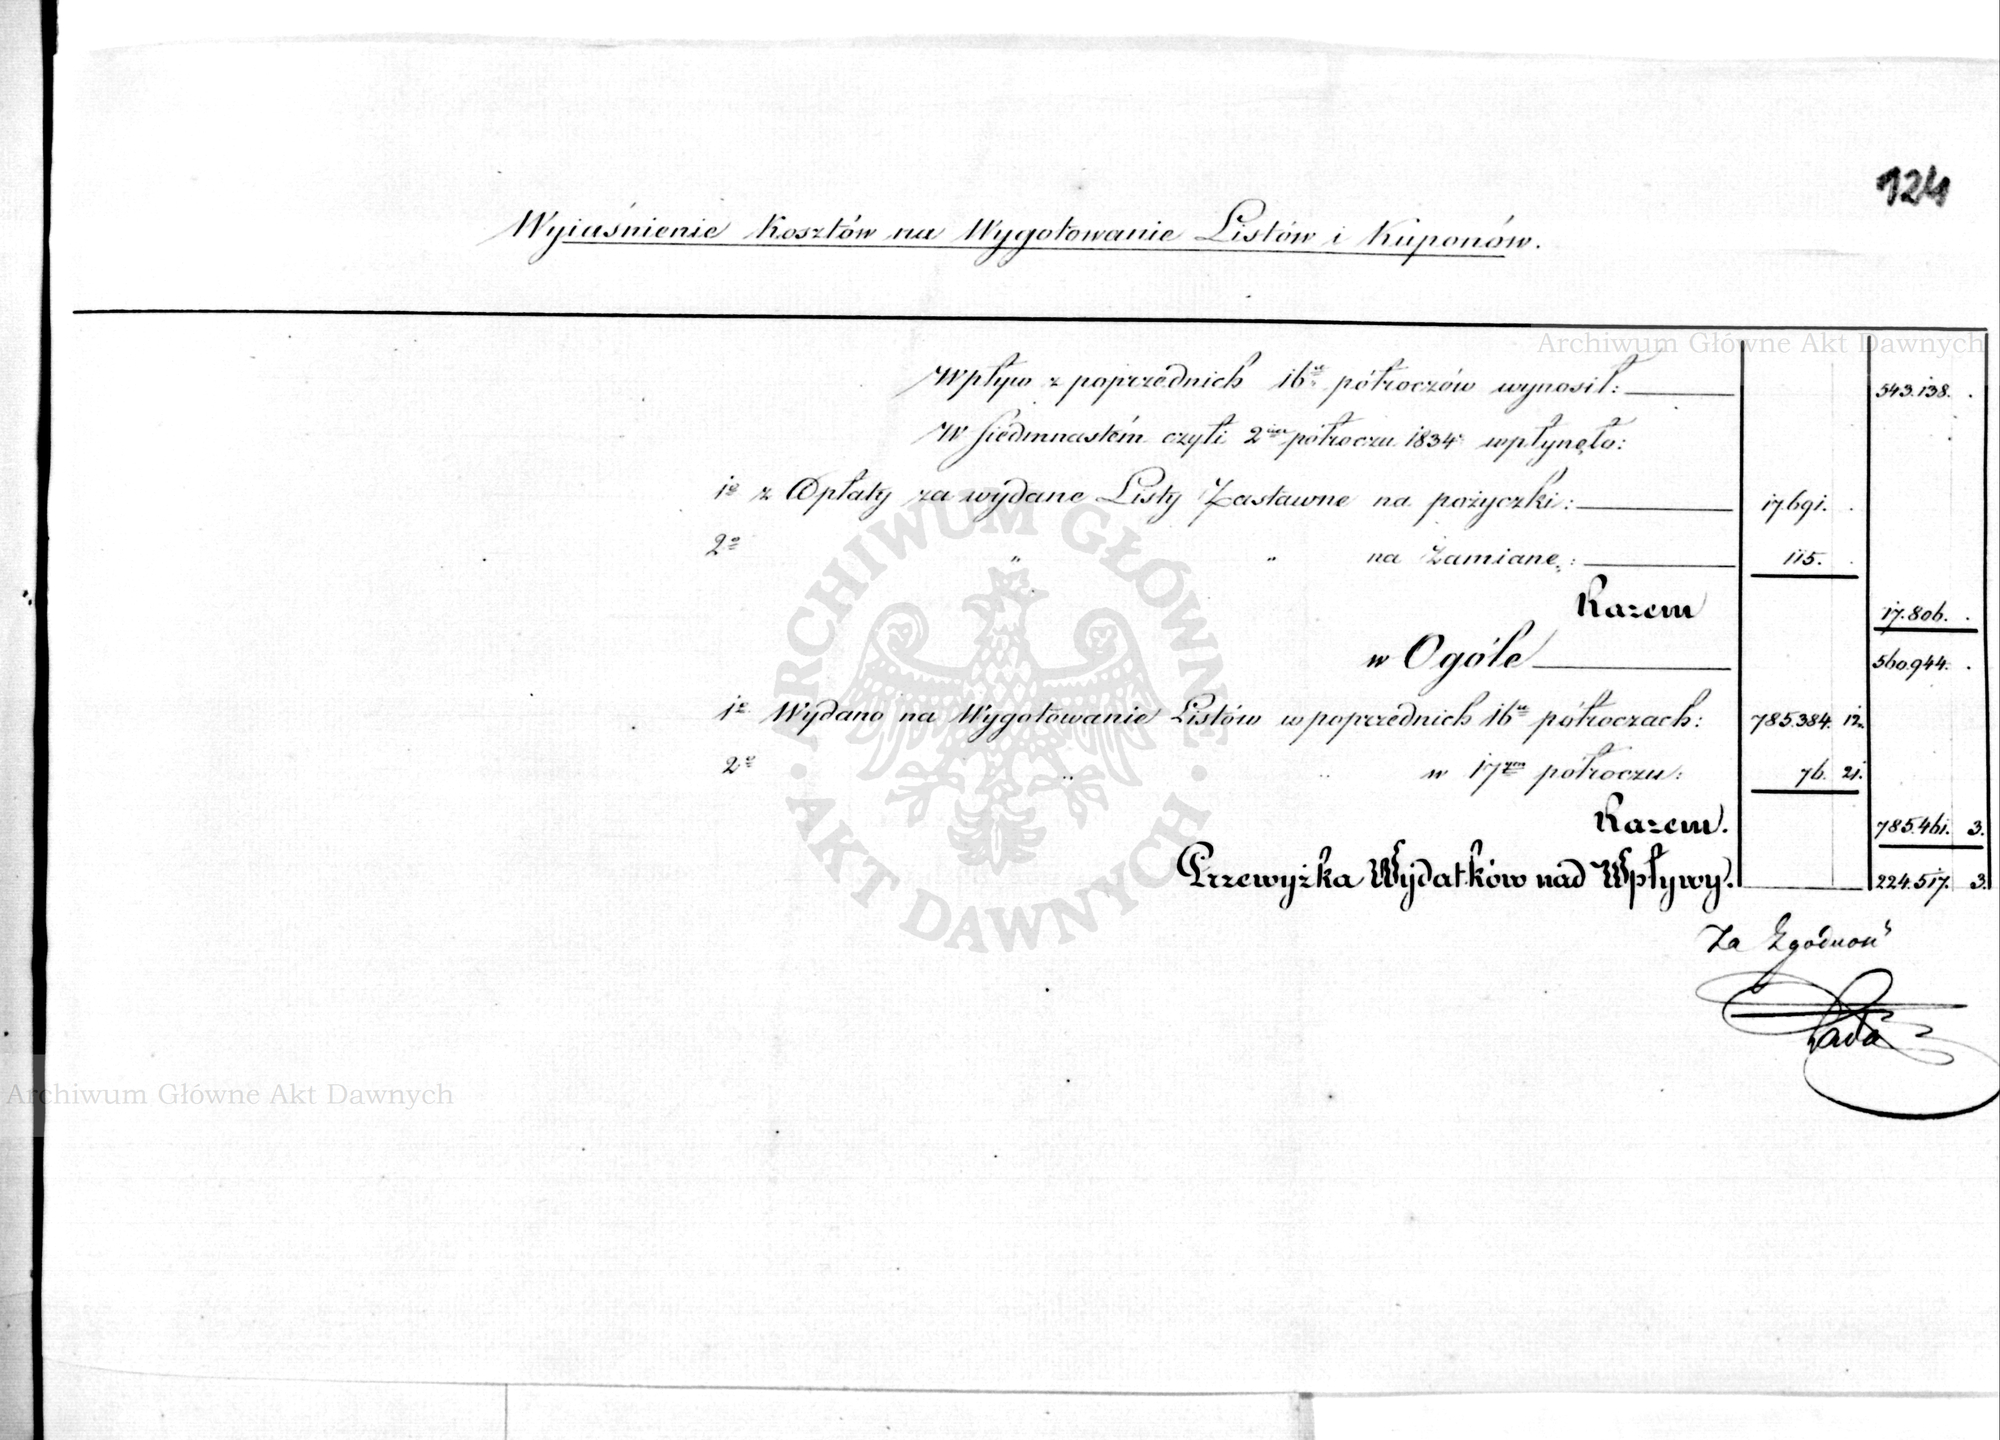 124
Wyiaśnienie Kosztów na Wygotowanie Listów i Kuponów.
Archiwum Główne Akt Dawnych
Wpływ z poprzednich 16u półroczów wynosił: 543.138. .
W Siedmnastém czyli 2im półroczu 1834 r wpłynęło:
1o z Opłaty za wydane Listy Zastawne na pożyczki: 17.691. .
2o " " na Zamianę: 115. .
Razem 17.806. .
w Ogóle 560.944. .
1o Wydano na Wygotowanie Listów w poprzednich 16u półroczach: 785.384. 12.
2o " " w 17ym półroczu: 76. 21.
Razem. 785.461. 3.
Przewyżka Wydatków nad Wpływy. 224.517. 3.
Za Zgodność
ARCHIWUM GŁÓWNE
AKT DAWNYCH
Archiwum Główne Akt Dawnych